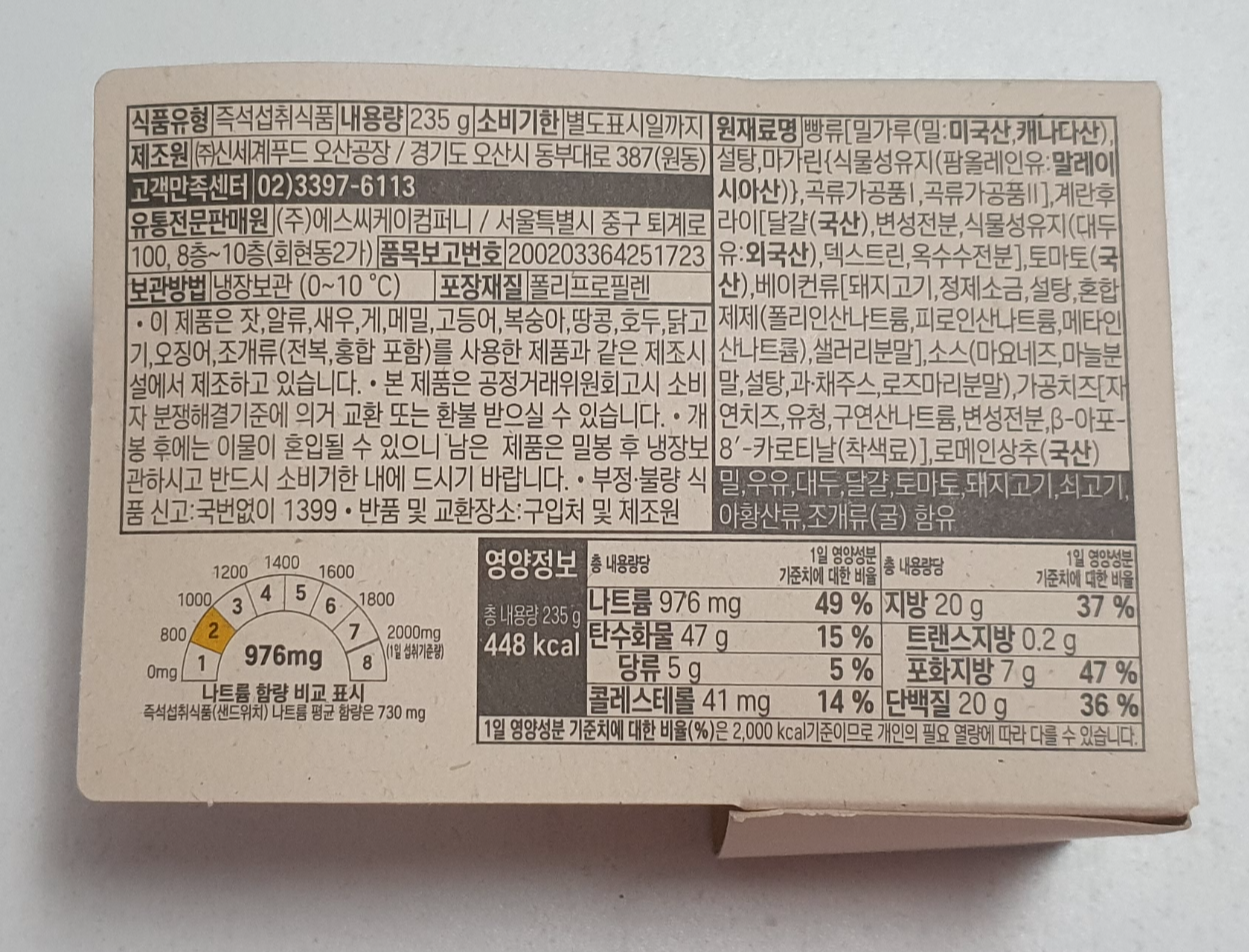 식품유형 즉석섭취식품 내용량 235 g 소비기한 별도표시일까지
제조원 ㈜신세계푸드 오산공장 / 경기도 오산시 동부대로 387(원동)
고객만족센터 02)3397-6113
유통전문판매원 (주)에스씨케이컴퍼니 / 서울특별시 중구 퇴계로
100, 8층~10층(회현동2가) 품목보고번호 2002033364251723
보관방법 냉장보관 (0~10 °C) 포장재질 폴리프로필렌
• 이 제품은 잣,알류,새우,게,메밀,고등어,복숭아,땅콩,호두,닭고
기,오징어,조개류(전복,홍합 포함)를 사용한 제품과 같은 제조시
설에서 제조하고 있습니다. • 본 제품은 공정거래위원회고시 소비
자 분쟁해결기준에 의거 교환 또는 환불 받으실 수 있습니다. • 개
봉 후에는 이물이 혼입될 수 있으니 남은 제품은 밀봉 후 냉장보
관하시고 반드시 소비기한 내에 드시기 바랍니다. • 부정·불량 식
품 신고:국번없이 1399 • 반품 및 교환장소:구입처 및 제조원
원재료명 빵류[밀가루(밀:미국산,캐나다산),
설탕,마가린{식물성유지(팜올레인유:말레이
시아산)},곡류가공품Ⅰ,곡류가공품Ⅱ],계란후
라이[달걀(국산),변성전분,식물성유지(대두
유:외국산),덱스트린,옥수수전분],토마토(국
산),베이컨류[돼지고기,정제소금,설탕,혼합
제제(폴리인산나트륨,피로인산나트륨,메타인
산나트륨),샐러리분말],소스(마요네즈,마늘분
말,설탕,과·채주스,로즈마리분말),가공치즈[자
연치즈,유청,구연산나트륨,변성전분,β-아포-
8′-카로티날(착색료)],로메인상추(국산)
밀,우유,대두,달걀,토마토,돼지고기,쇠고기,
아황산류,조개류(굴) 함유
0mg 800 1000 1200 1400 1600 1800 2000mg
(1일 섭취기준량)
1 2 3 4 5 6 7 8
976mg
나트륨 함량 비교 표시
즉석섭취식품(샌드위치) 나트륨 평균 함량은 730 mg
영양정보
총 내용량 235 g
448 kcal
총 내용량당 1일 영양성분 기준치에 대한 비율 총 내용량당 1일 영양성분 기준치에 대한 비율
나트륨 976 mg 49 % 지방 20 g 37 %
탄수화물 47 g 15 % 트랜스지방 0.2 g
당류 5 g 5 % 포화지방 7 g 47 %
콜레스테롤 41 mg 14 % 단백질 20 g 36 %
1일 영양성분 기준치에 대한 비율(%)은 2,000 kcal기준이므로 개인의 필요 열량에 따라 다를 수 있습니다.